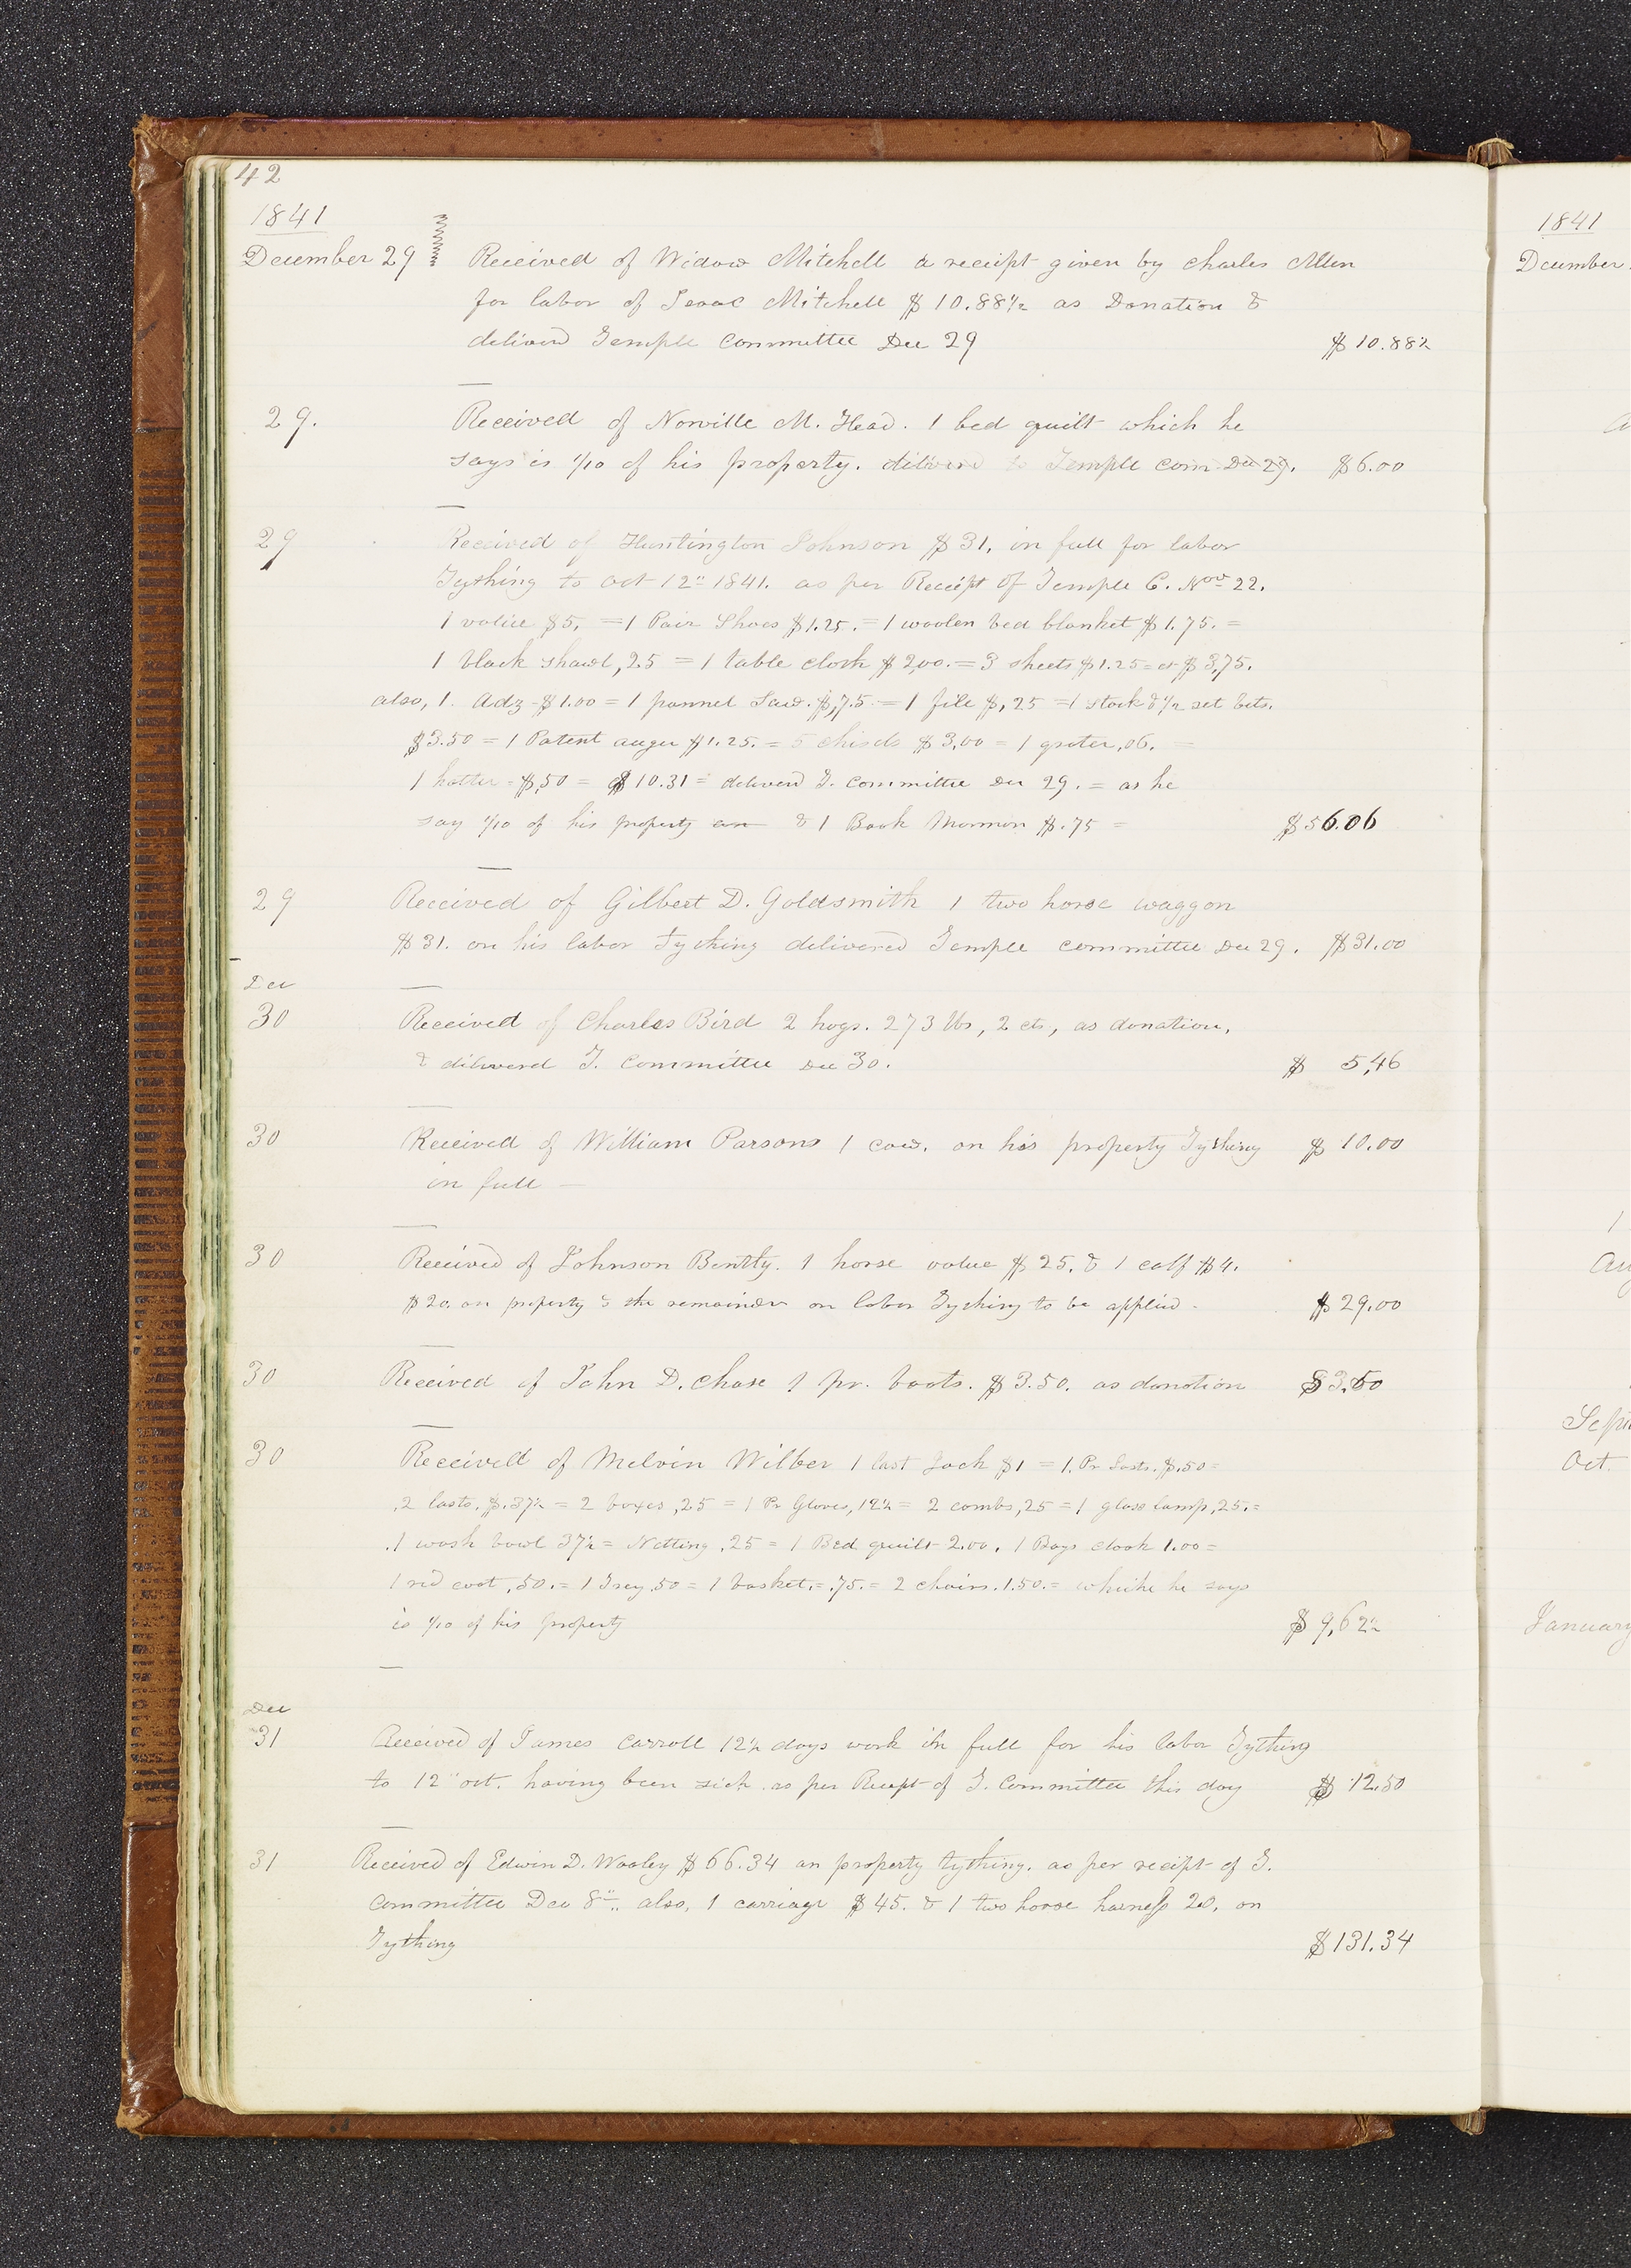 42
1841
December 29 Received of Widow Mitchell a receipt given by Charles Allen
for labor of Isaac Mitchell $10.88½ as Donation &
deliverd Temple Committee Dec 29 $10.88½
29. Received of Norville M. Head. 1 bed quilt which he
says is 1/10 of his property. deliverd to Temple Com Dec 29. $6.00
29 Received of Huntington Johnson $31, in full for labor
Tything to Oct 12" 1841. as per Receipt of Temple C. Nov 22.
1 valice $5, = 1 Pair Shoes $1.25. = 1 woolen bed blanket $1.75. =
1 black shawl, 25 = 1 table cloth $2,00. = 3 sheets $1.25 = $3,75.
also, 1. Adz $1.00 = 1 pannel Saw. $,75. = 1 file $,25 = 1 stock & ½ set bits.
$3.50 = 1 Patent auger $1.25. = 5 chisels $3,00 = 1 grater, 06. =
1 halter = $,50 = $10.31 = deliverd T. Committee Dec 29. = as he
say 1/10 of his property an & 1 Book Mormon $.75 = $56.06
29 Received of Gilbert D. Goldsmith 1 two horse waggon
$31. on his labor tything delivered Temple Committee Dec 29. $31.00
Dec
30 Received of Charles Bird 2 hogs. 273 lbs, 2 cts, as donation,
& deliverd T. Committee Dec 30. $ 5,46
30 Received of William Parsons 1 cow. on his property Tything $ 10.00
in full —
30 Received of Johnson Bently. 1 horse value $25. & 1 calf $4.
$20. on property & the remainder on labor Tything to be applied. $29,00
30 Received of John D. Chase 1 pr. boots. $3.50. as donation $3.50
30 Received of Melvin Wilber 1 last Jack $1 = 1. Pr Lasts. $.50 =
2 lasts. $.37½ = 2 boxes ,25 = 1 Pr Gloves, 12½ = 2 combs, 25 = 1 glass lamp, 25. =
1 wash bowl 37½ = Netting ,25 = 1 Bed quilt 2.00. 1 Boys cloak 1.00 =
1 red coat ,50. = 1 Grey ,50 = 1 basket. = .75. = 2 chairs. 1.50. = whiche he says
is 1/10 of his property $9,62½
Dec
31 Received of James Carroll 12½ days work in full for his labor Tything
to 12" Oct. having been sick as per Receipt of T. Committee this day $12.50
31 Received of Edwin D. Wooley $66.34 on property tything. as per receipt of T.
Committee Dec 8" also, 1 carriage $45. & 1 two horse harness 20, on
Tything $131.34
1841
December
1
Oct.
January